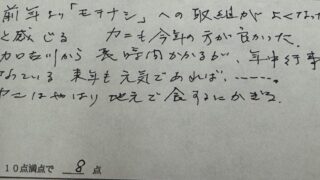 前年より「モテナシ」への取組がよくなった
と感じる カニも今年の方が良かった.
から長時間かかるが、年中行事
っている 来年も元気であれば、------。
カニはやはり地元で食するにかぎる.
10点満点で 8 点